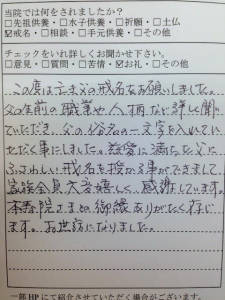 当院では何をされましたか?
・□先祖供養・□水子供養・□祈願・□土仏
☑戒名・□相談・□手元供養・□その他
チェックをいれ詳しくお聞かせ下さい。
□意見・□質問・□苦情・☑お礼・□その他
この度は亡き父の戒名をお願いしました。
父の生前の職業や人柄など詳しく聞い
ていただき、父の俗名の一文字を入れていた
だく事にしました。慈愛に満ちた父に
ふさわしい戒名を授かる事ができまして
家族全員大変嬉しく、感謝しています。
本寿院さまとの御縁ありがたく存じ
ます。お世話になりました。
一部HPにて紹介させていただく場合がございます。